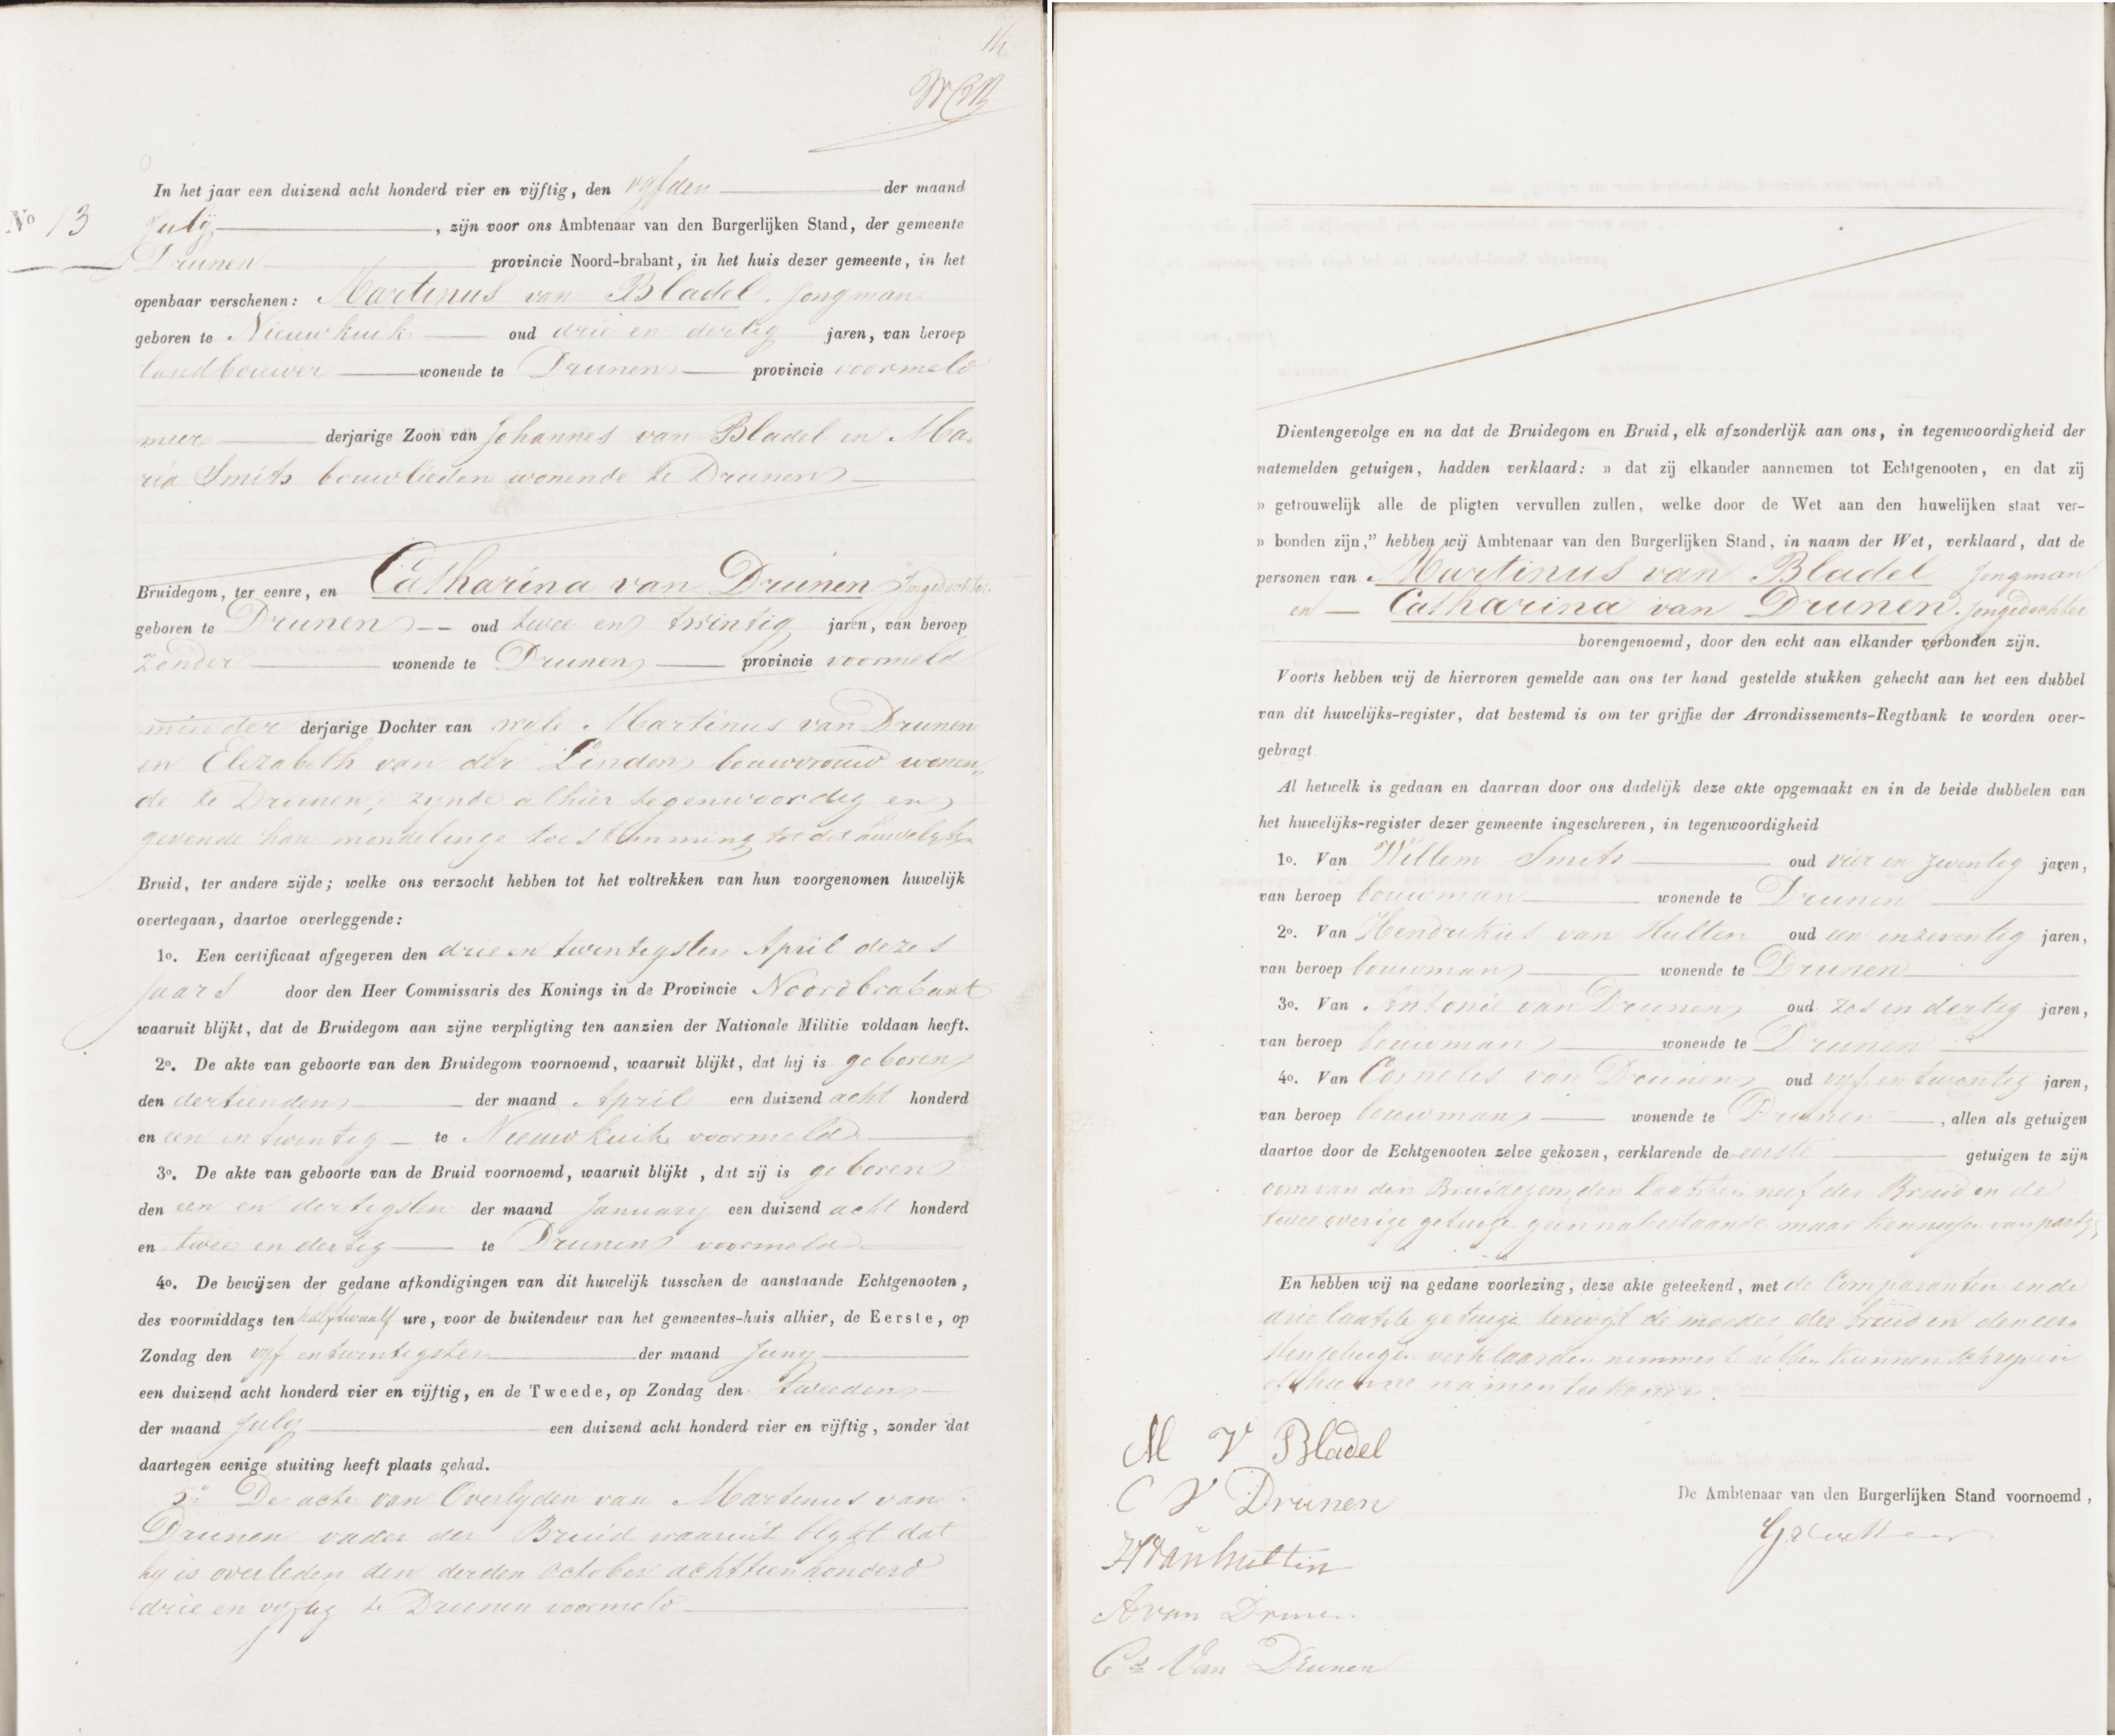 14
In het jaar een duizend acht honderd vier en vijftig, den vyfden der maand
No 13
July, zijn voor ons Ambtenaar van den Burgerlijken Stand, der gemeente
Drunen provincie Noord-brabant, in het huis dezer gemeente, in het
openbaar verschenen: Martinus van Bladel, jongman
geboren te Nieuwkuik oud drie en dertig jaren, van beroep
landbouwer wonende te Drunen provincie voormeld
meer derjarige Zoon van Johannes van Bladel en Ma-
ria Smits bouwlieden wonende te Drunen
Bruidegom, ter eenre, en Catharina van Drunen Jongedochter
geboren te Drunen oud twee en twintig jaren, van beroep
zonder wonende te Drunen provincie voormeld
minder derjarige Dochter van wyle Martinus van Drunen
en Elizabeth van der Linden bouwvrouw wonen"
de te Drunen, zynde alhier tegenwoordig en
gevende hare mondelinge toestemming tot dit huwelyk
Bruid, ter andere zijde; welke ons verzocht hebben tot het voltrekken van hun voorgenomen huwelijk
overtegaan, daartoe overleggende:
1o. Een certificaat afgegeven den drie en twentigsten April dezes
jaars door den Heer Commissaris des Konings in de Provincie Noordbrabant
waaruit blijkt, dat de Bruidegom aan zijne verpligting ten aanzien der Nationale Militie voldaan heeft.
2o. De akte van geboorte van den Bruidegom voornoemd, waaruit blijkt, dat hij is geboren
den dertienden der maand April een duizend acht honderd
en een en twentig te Nieuwkuik voormeld
3o. De akte van geboorte van de Bruid voornoemd, waaruit blijkt, dat zij is geboren
den een en dertigsten der maand January een duizend acht honderd
en twee en dertig te Drunen voormeld
4o. De bewijzen der gedane afkondigingen van dit huwelijk tusschen de aanstaande Echtgenooten,
des voormiddags ten halftwaalf ure, voor de buitendeur van het gemeentes-huis alhier, de Eerste, op
Zondag den vyf en twentigsten der maand Juny
een duizend acht honderd vier en vijftig, en de Tweede, op Zondag den tweeden
der maand July een duizend acht honderd vier en vijftig, zonder dat
daartegen eenige stuiting heeft plaats gehad.
5o De acte van Overlyden van Martinus van
Drunen vader der Bruid waaruit blykt dat
hy is overleden den derden October achttienhonderd
drie en vyftig te Drunen voormeld
Dientengevolge en na dat de Bruidegom en Bruid, elk afzonderlijk aan ons, in tegenwoordigheid der
natemelden getuigen, hadden verklaard: » dat zij elkander aannemen tot Echtgenooten, en dat zij
» getrouwelijk alle de pligten vervullen zullen, welke door de Wet aan den huwelijken staat ver-
» bonden zijn,” hebben wij Ambtenaar van den Burgerlijken Stand, in naam der Wet, verklaard, dat de
personen van Martinus van Bladel jongman
en — Catharina van Drunen. jongedochter
bovengenoemd, door den echt aan elkander verbonden zijn.
Voorts hebben wij de hiervoren gemelde aan ons ter hand gestelde stukken gehecht aan het een dubbel
van dit huwelijks-register, dat bestemd is om ter griffie der Arrondissements-Regtbank te worden over-
gebragt
Al hetwelk is gedaan en daarvan door ons dadelijk deze akte opgemaakt en in de beide dubbelen van
het huwelijks-register dezer gemeente ingeschreven, in tegenwoordigheid
1o. Van Willem Smits oud vier en zeventig jaren,
van beroep bouwman wonende te Drunen
2o. Van Hendrikus van Hulten oud een en zeventig jaren,
van beroep bouwman wonende te Drunen
3o. Van Antonie van Drunen oud zes en dertig jaren,
van beroep bouwman wonende te Drunen
4o. Van Cornelis van Drunen oud vyf en twentig jaren,
van beroep bouwman wonende te Drunen, allen als getuigen
daartoe door de Echtgenooten zelve gekozen, verklarende de eerste getuigen te zijn
oom van den Bruidegom, den laatsten neef der Bruid en de
twee overige getuige geen nabestaande maar kennissen van partyen
En hebben wij na gedane voorlezing, deze akte geteekend, met de Comparanten en de
drie laatste getuige terwyl de moeder der bruid en den eer-
sten getuige verklaarden nimmer te hebben kunnen schryven
of hunne namen teekenen.
M V Bladel
C V Drunen
De Ambtenaar van den Burgerlijken Stand voornoemd,
H van hulten
A van Drunen
Cs Van Drunen